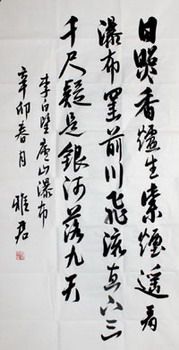 日照香爐生紫煙遥看
瀑布罣前川飛流直下三
千尺疑是銀河落九天
李白望廬山瀑布
辛卯春月 雅君